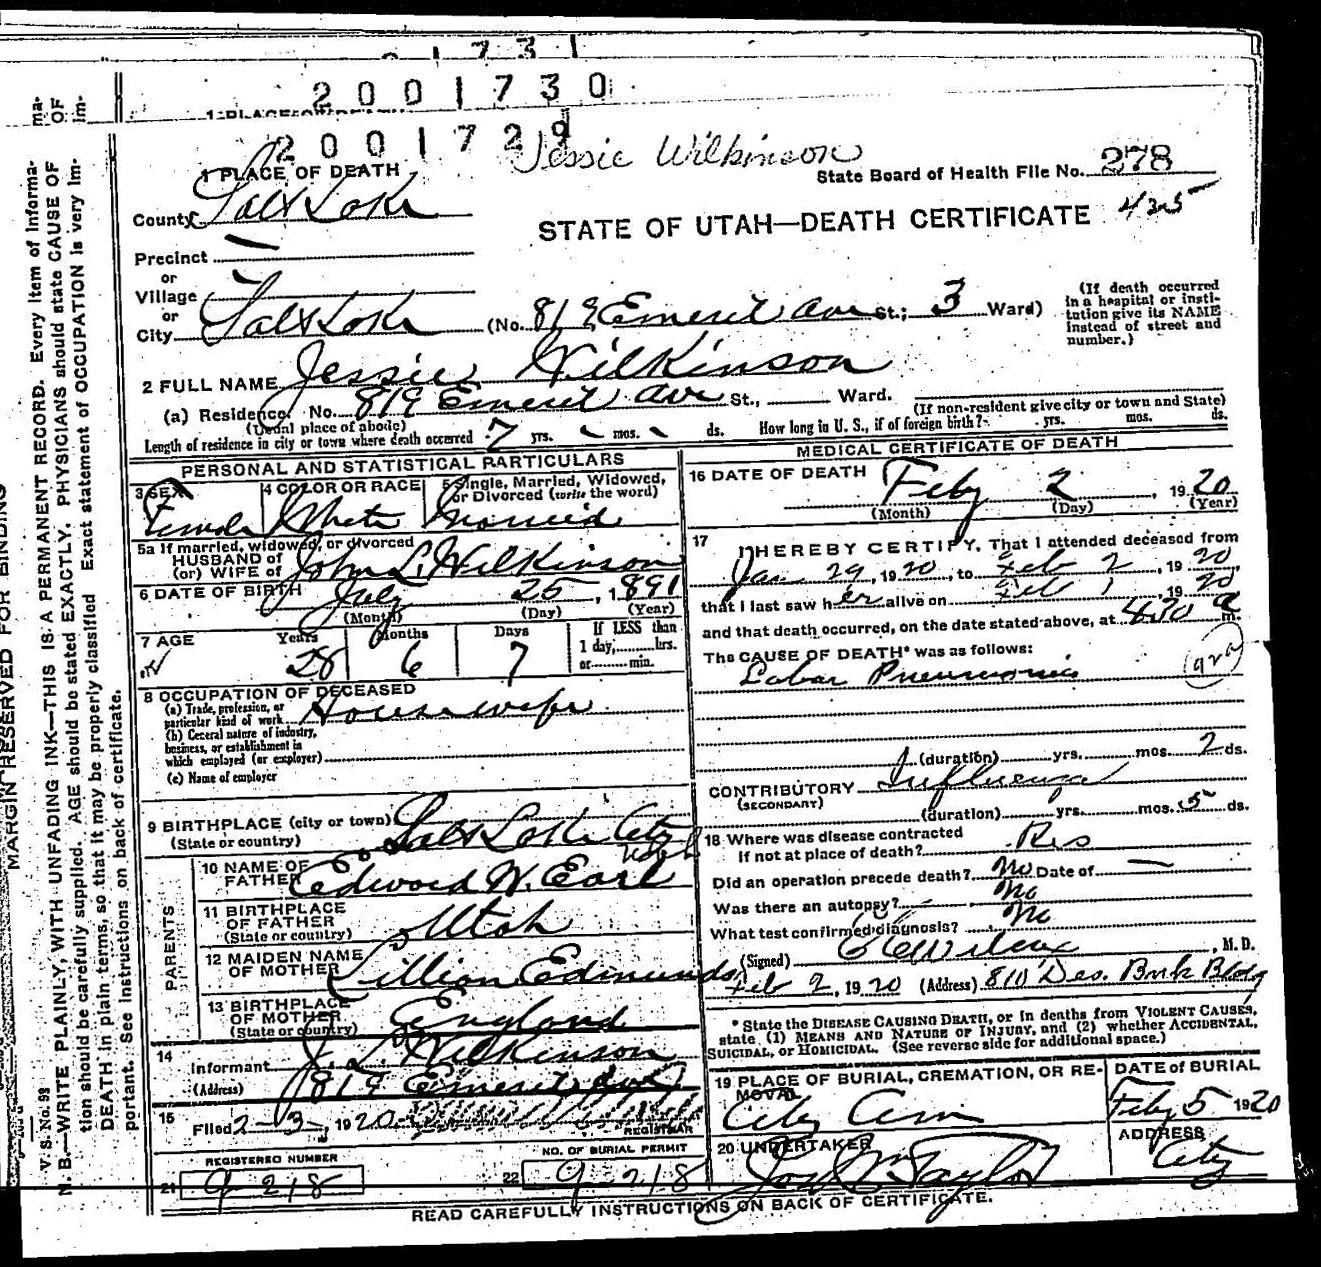 1731
2001730
1 PLACE OF DEATH
2001729
Jessie Wilkinson
1 PLACE OF DEATH
State Board of Health File No. 278
County Salt Lake
STATE OF UTAH—DEATH CERTIFICATE 435
Precinct —
or
Village
or
City Salt Lake (No. 819 Emerit Ave St.; 3 Ward)
(If death occurred in a hospital or institution give its NAME instead of street and number.)
2 FULL NAME Jessie Wilkinson
(a) Residence. No. 819 Emerit Ave St., Ward.
(Usual place of abode) (If non-resident give city or town and State)
Length of residence in city or town where death occurred 7 yrs. - mos. - ds. How long in U. S., if of foreign birth? yrs. mos. ds.
PERSONAL AND STATISTICAL PARTICULARS
3 SEX Female
4 COLOR OR RACE White
5 Single, Married, Widowed, or Divorced (write the word) Married
5a If married, widowed, or divorced
HUSBAND of
(or) WIFE of John L. Wilkinson
6 DATE OF BIRTH July 25, 1891
(Month) (Day) (Year)
7 AGE Years 28 Months 6 Days 7
If LESS than 1 day, hrs. or min.
8 OCCUPATION OF DECEASED
(a) Trade, profession, or particular kind of work Housewife
(b) General nature of industry, business, or establishment in which employed (or employer)
(c) Name of employer
9 BIRTHPLACE (city or town) Salt Lake City
(State or country) Utah
PARENTS
10 NAME OF FATHER Edward W. Earl
11 BIRTHPLACE OF FATHER (State or country) Utah
12 MAIDEN NAME OF MOTHER Lillian Edmunds
13 BIRTHPLACE OF MOTHER (State or country) England
14 Informant J. L. Wilkinson
(Address) 819 Emerit Ave
15 Filed 2-3-, 1920
REGISTRAR
REGISTERED NUMBER
21 9218
NO. OF BURIAL PERMIT
22 9218
MEDICAL CERTIFICATE OF DEATH
16 DATE OF DEATH Feby 2, 1920
(Month) (Day) (Year)
17 I HEREBY CERTIFY, That I attended deceased from
Jan 29, 1920, to Feb 2, 1920,
that I last saw her alive on Feb 1, 1920
and that death occurred, on the date stated above, at 430 a m.
The CAUSE OF DEATH* was as follows:
Lobar Pneumonia
(duration) yrs. mos. 2 ds.
CONTRIBUTORY Influenza
(SECONDARY)
(duration) yrs. mos. 5 ds.
18 Where was disease contracted
if not at place of death? Res
Did an operation precede death? No Date of —
Was there an autopsy? No
What test confirmed diagnosis? No
(Signed) Wilcox, M. D.
Feb 2, 1920 (Address) 810 Des. Bnk Bldg
* State the DISEASE CAUSING DEATH, or in deaths from VIOLENT CAUSES,
state (1) MEANS AND NATURE OF INJURY, and (2) whether ACCIDENTAL,
SUICIDAL, or HOMICIDAL. (See reverse side for additional space.)
19 PLACE OF BURIAL, CREMATION, OR REMOVAL City Cem
DATE of BURIAL Feby 5 1920
20 UNDERTAKER Jos Wm Taylor
ADDRESS City
READ CAREFULLY INSTRUCTIONS ON BACK OF CERTIFICATE.
MARGIN RESERVED FOR BINDING
V. S. No. 98
N. B.—WRITE PLAINLY, WITH UNFADING INK—THIS IS A PERMANENT RECORD. Every item of informa-
tion should be carefully supplied. AGE should be stated EXACTLY. PHYSICIANS should state CAUSE OF
DEATH in plain terms, so that it may be properly classified. Exact statement of OCCUPATION is very im-
portant. See instructions on back of certificate.